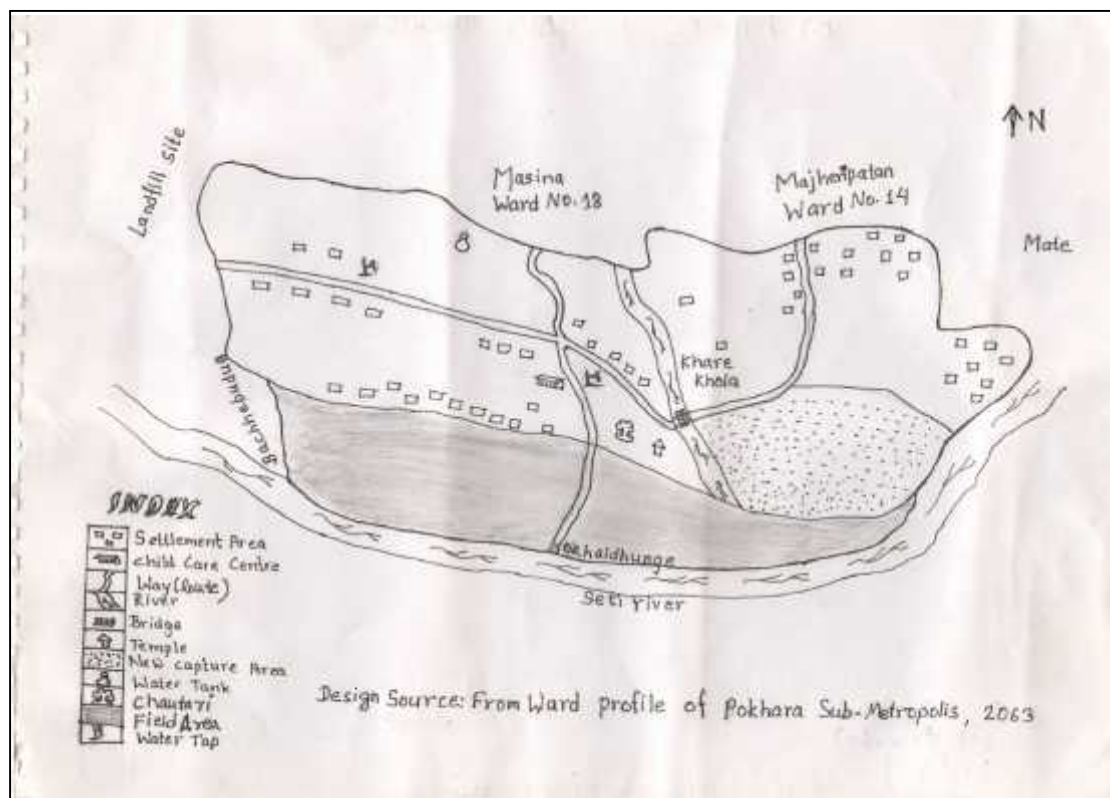 N
Landfill site
Masina
Ward No. 18
Majheripatan
Ward No. 14
Mate
Khare
Khola
Seti river
INDEX
Settlement Area
child Care Centre
Way(Route)
River
Bridge
Temple
New capture Area
Water Tank
Chautari
Field Area
Water Tap
Design Source: From Ward profile of Pokhara Sub-Metropolis, 2063